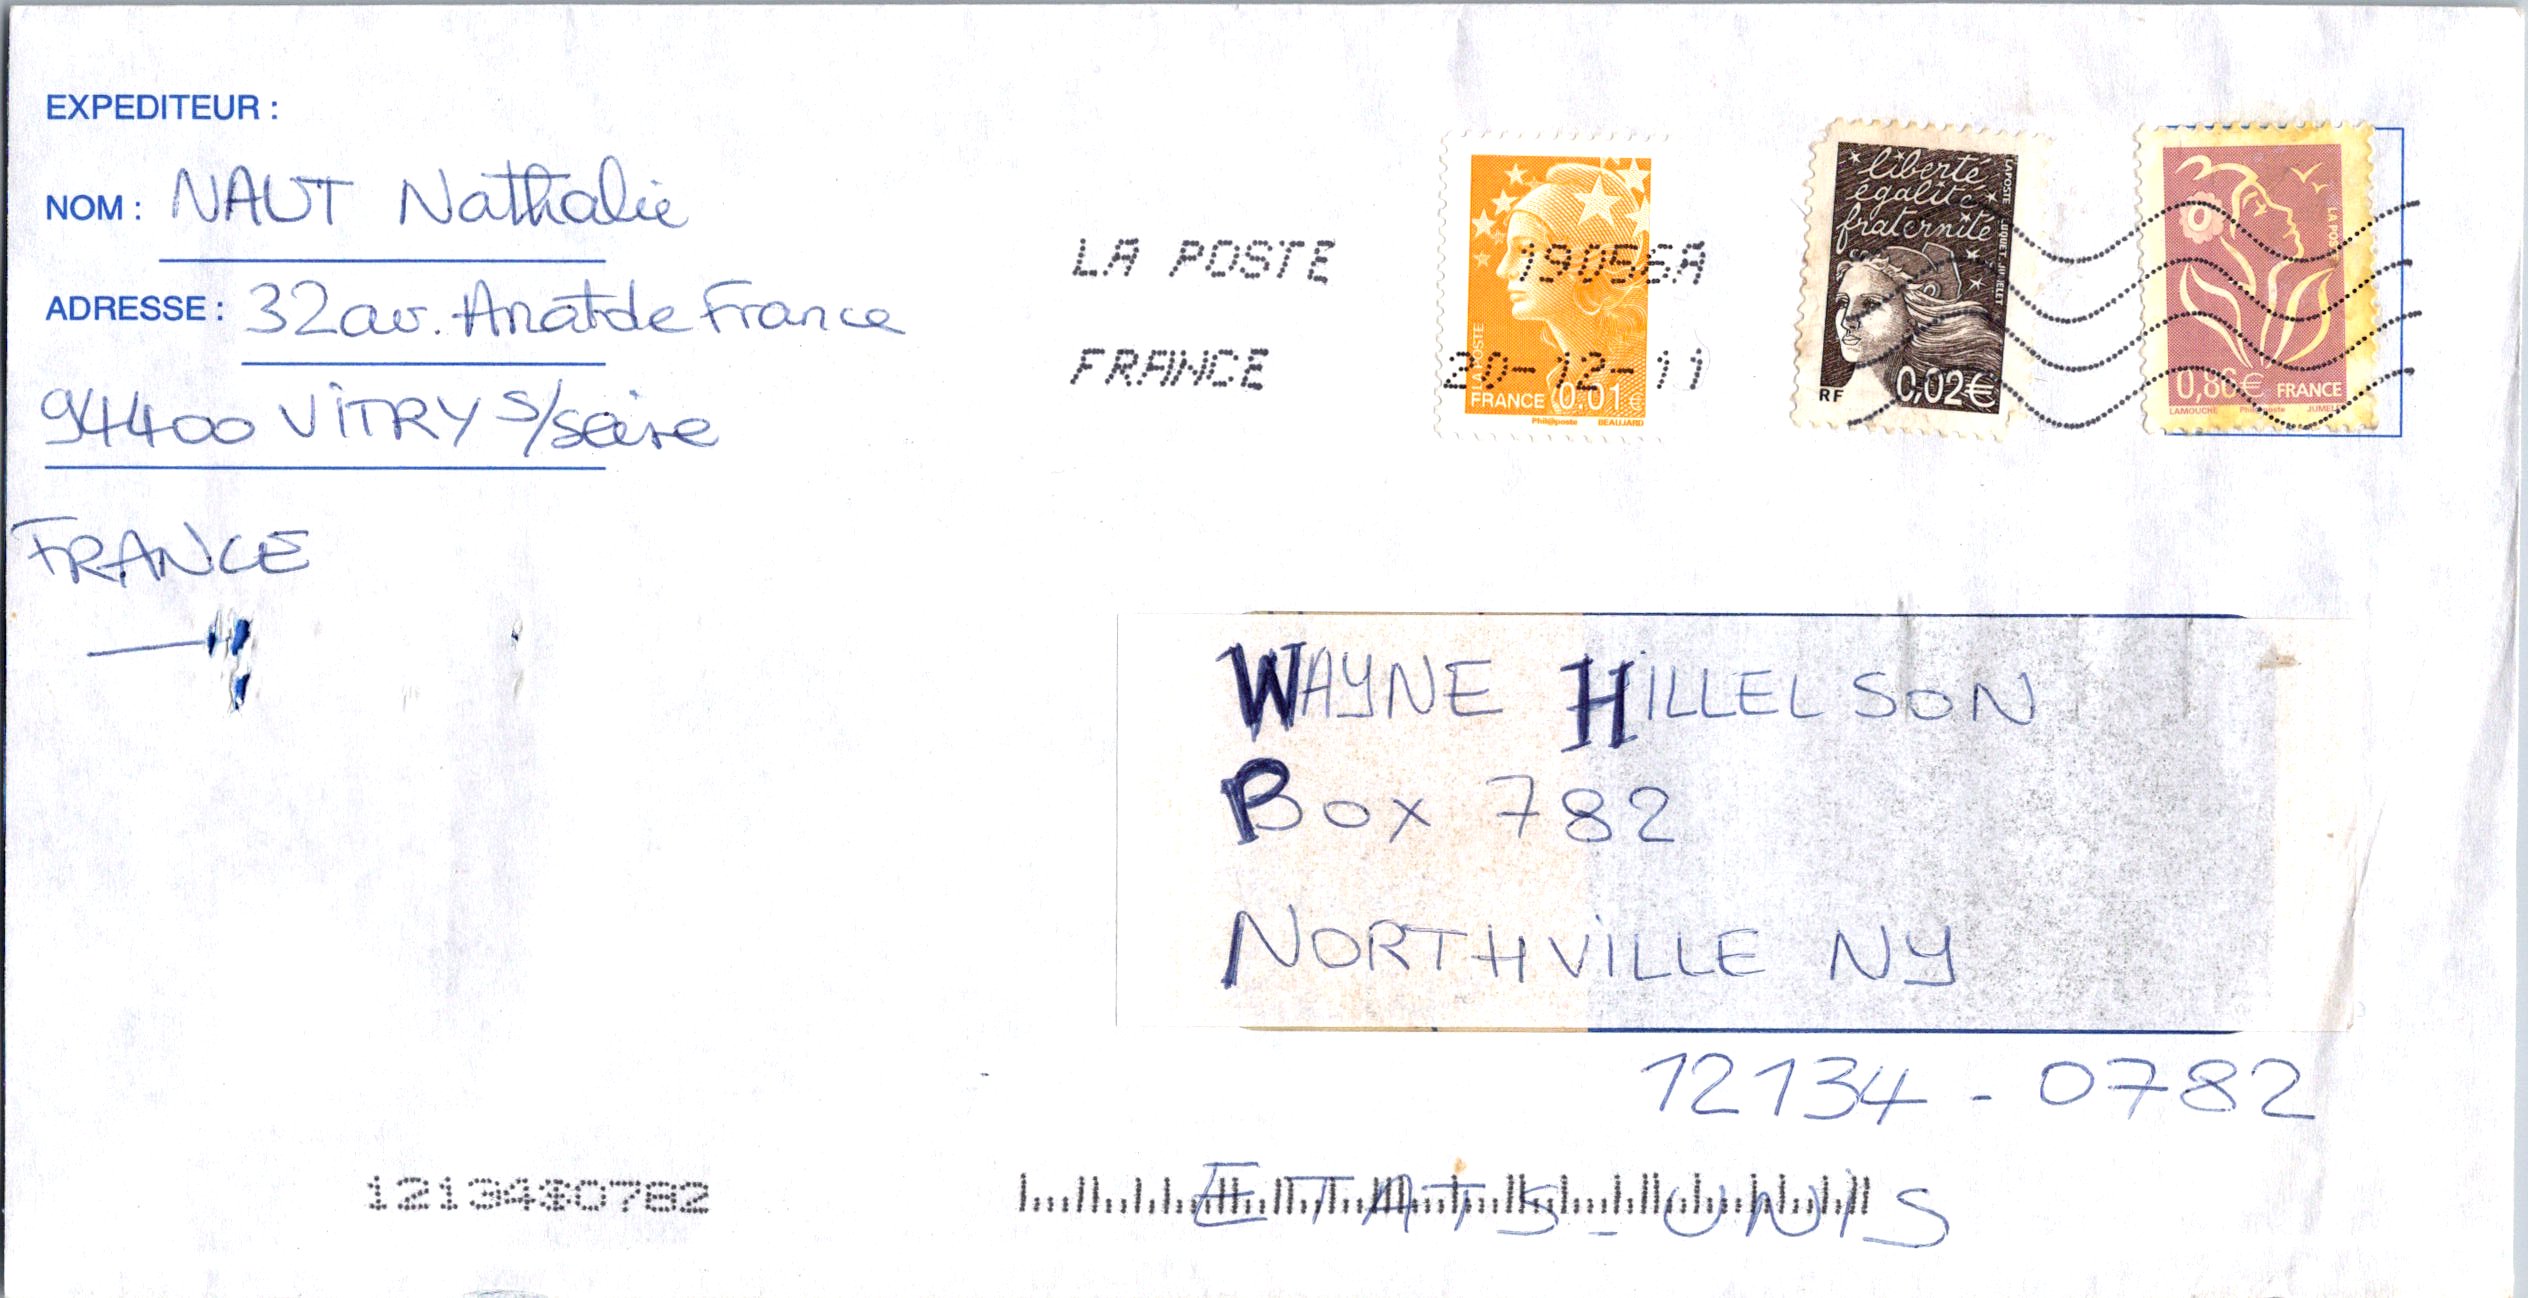 EXPEDITEUR :
NOM : NAUT Nathalie
ADRESSE : 32 av. Anatole France
94400 VITRY S/seine
FRANCE
LA POSTE 19056A
FRANCE 20-12-11
LA POSTE
FRANCE 0.01€
Phil@poste BEAUJARD
liberté
égalité
fraternité
LA POSTE LUQUET JUMELET
RF 0,02€
LA POSTE
0,86€ FRANCE
LAMOUCHE Phil@poste JUMELET
WAYNE HILLELSON
Box 782
NORTHVILLE NY
12134 - 0782
ETATS-UNIS